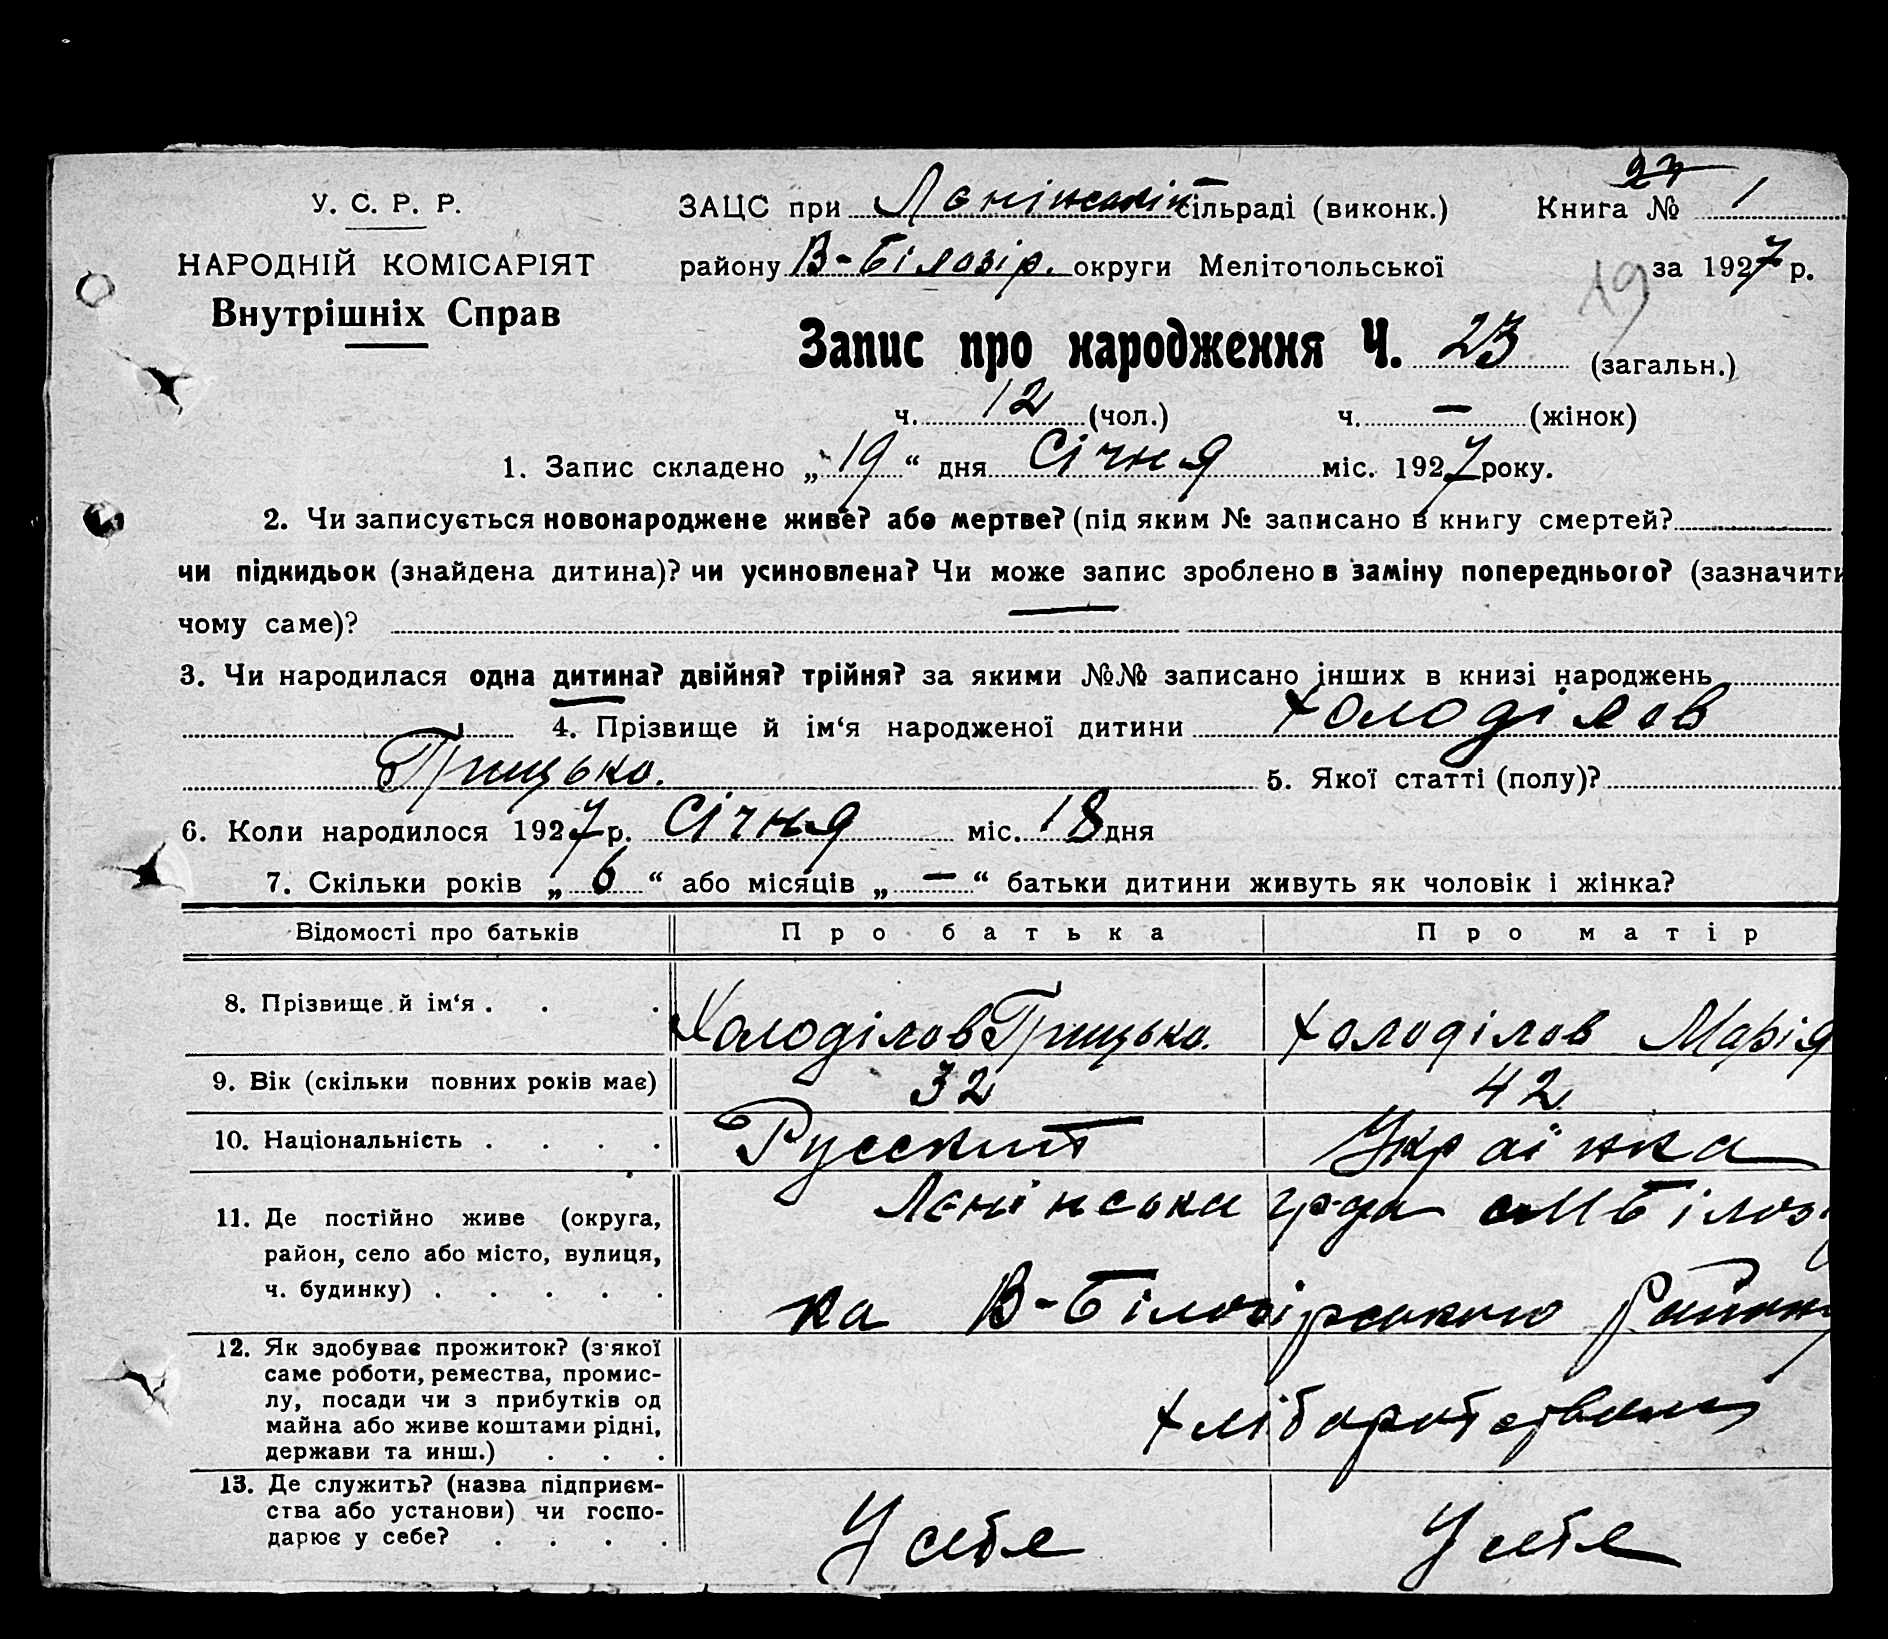 У. С. Р. Р.
НАРОДНІЙ КОМІСАРІЯТ
Внутрішніх Справ
ЗАЦС при Ленінській сільраді (виконк.)
Книга № 24 1
району В-Білозір. округи Мелітопольської
19 за 1927 р.
Запис про народження Ч. 23 (загальн.)
ч. 12 (чол.) ч. — (жінок)
1. Запис складено „19“ дня Січня міс. 1927 року.
2. Чи записується новонароджене живе? або мертве? (під яким № записано в книгу смертей?
чи підкидьок (знайдена дитина)? чи усиновлена? Чи може запис зроблено в заміну попереднього? (зазначити
чому саме)? —
3. Чи народилася одна дитина? двійня? трійня? за якими №№ записано інших в книзі народжень
4. Прізвище й ім‘я народженої дитини Холоділов
Грицько. 5. Якої статті (полу)?
6. Коли народилося 1927 р. Січня міс. 18 дня
7. Скільки років „6“ або місяців „—“ батьки дитини живуть як чоловік і жінка?
Відомості про батьків Про батька Про матір
8. Прізвище й ім‘я . . . Холоділов Грицько. Холоділов Марія
9. Вік (скільки повних років має) 32 42
10. Національність . . . . Русский Українка
11. Де постійно живе (округа,
район, село або місто, вулиця,
ч. будинку) . . . . .
Ленінська с М Білоз
ка В-Білозірського Району
12. Як здобуває прожиток? (з якої
саме роботи, ремества, промис-
лу, посади чи з прибутків од
майна або живе коштами рідні,
держави та инш.) . . .
13. Де служить? (назва підприєм-
ства або установи) чи госпо-
дарює у себе? . . . .
У себе У себе